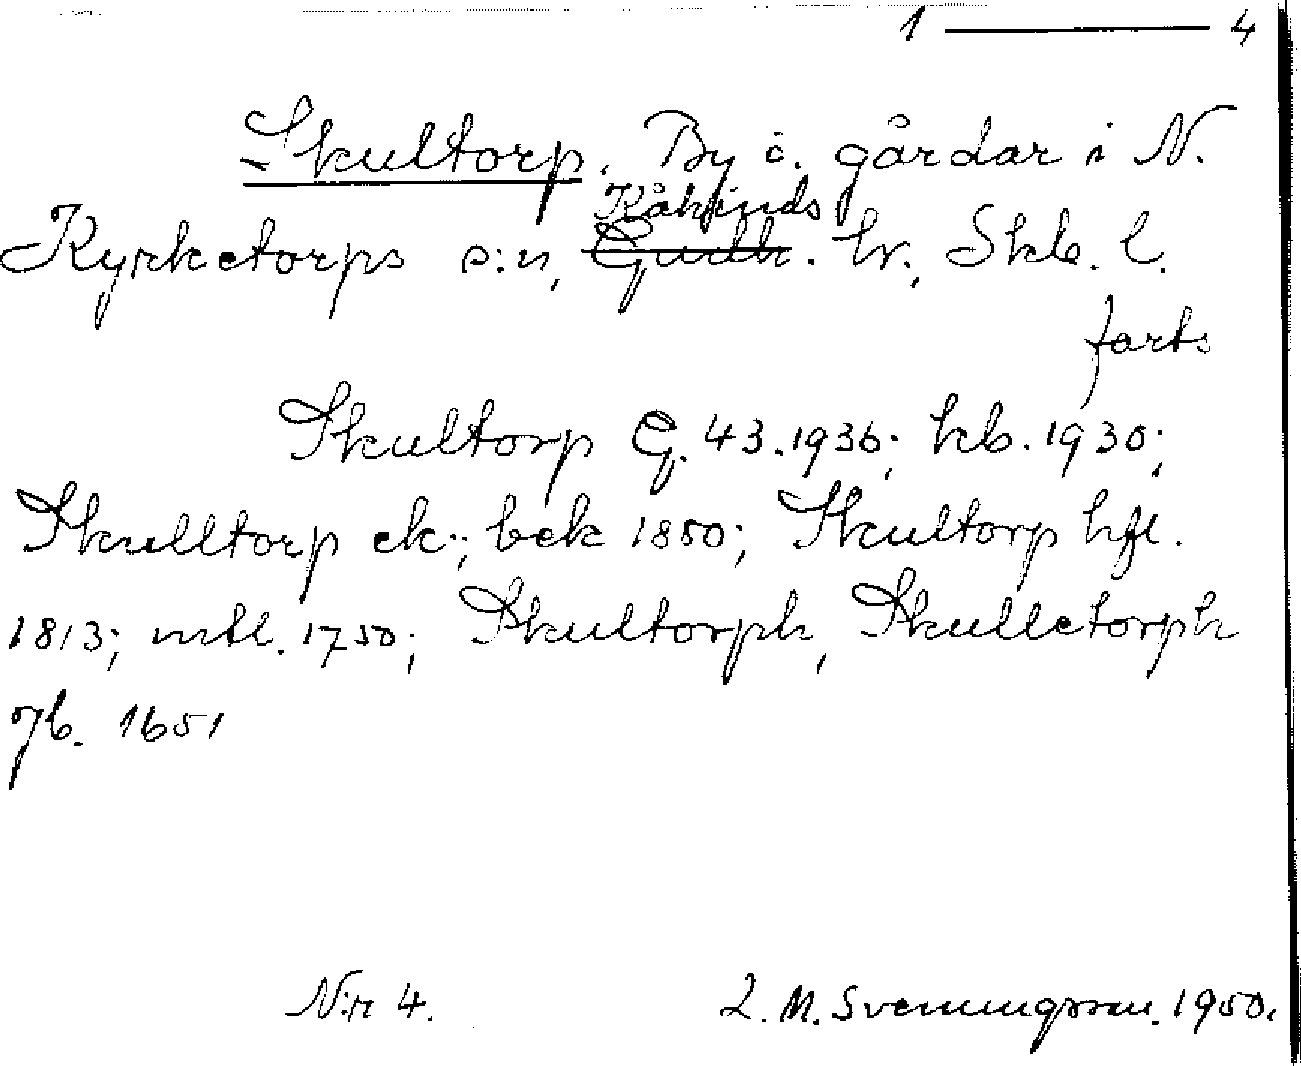 1 — 4
Skultorp. By o. gårdar i N.
Kåkinds
Kyrketorps s:n, Gudh. hr., Skb. l.
forts
Skultorp G. 43.1936; kb. 1930;
Skulltorp ek.; bek 1850; Skultorp hfl.
1813; mtl. 1750; Skultorph, Skulletorph
Jb. 1651
N:r 4. L. M. Svenungsson. 1950.